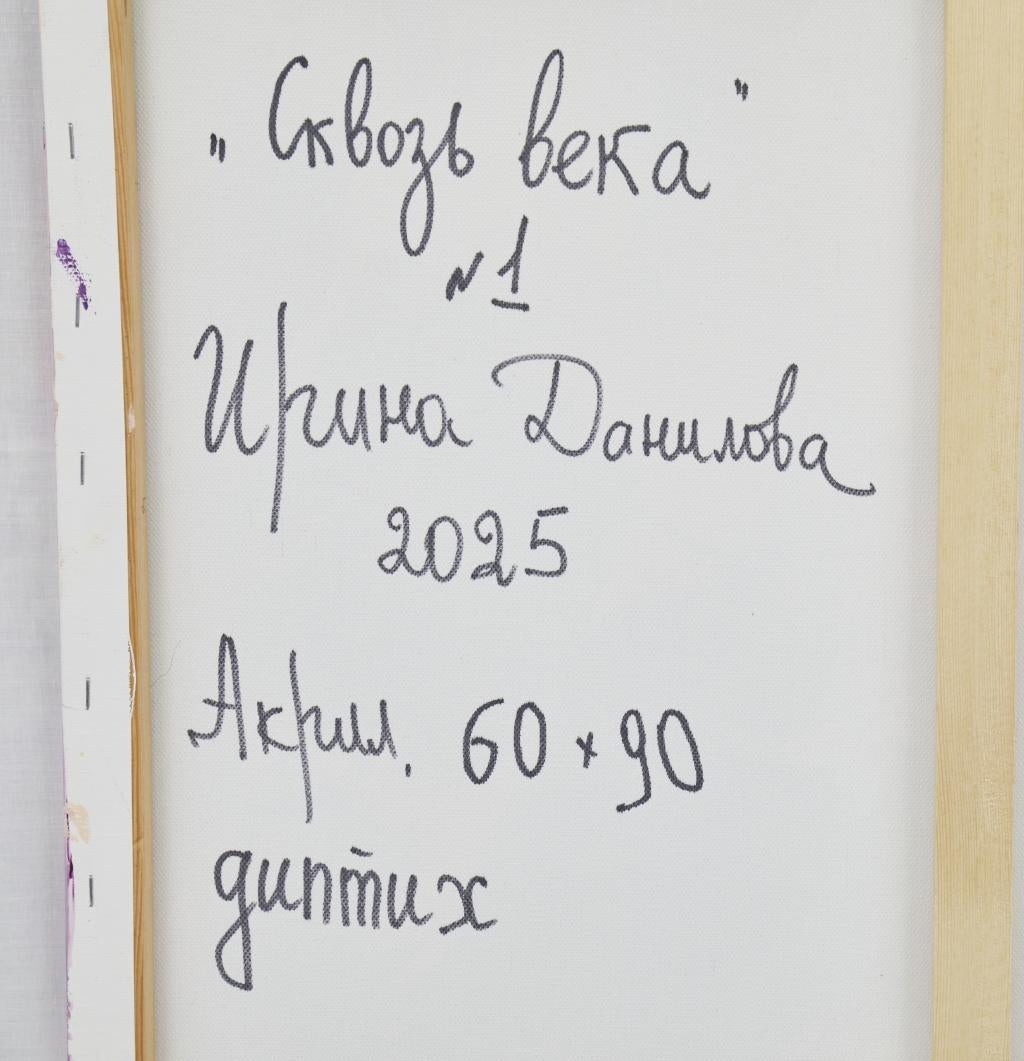 „Сквозь века"
№1
Ирина Данилова
2025
Акрил. 60×90
диптих